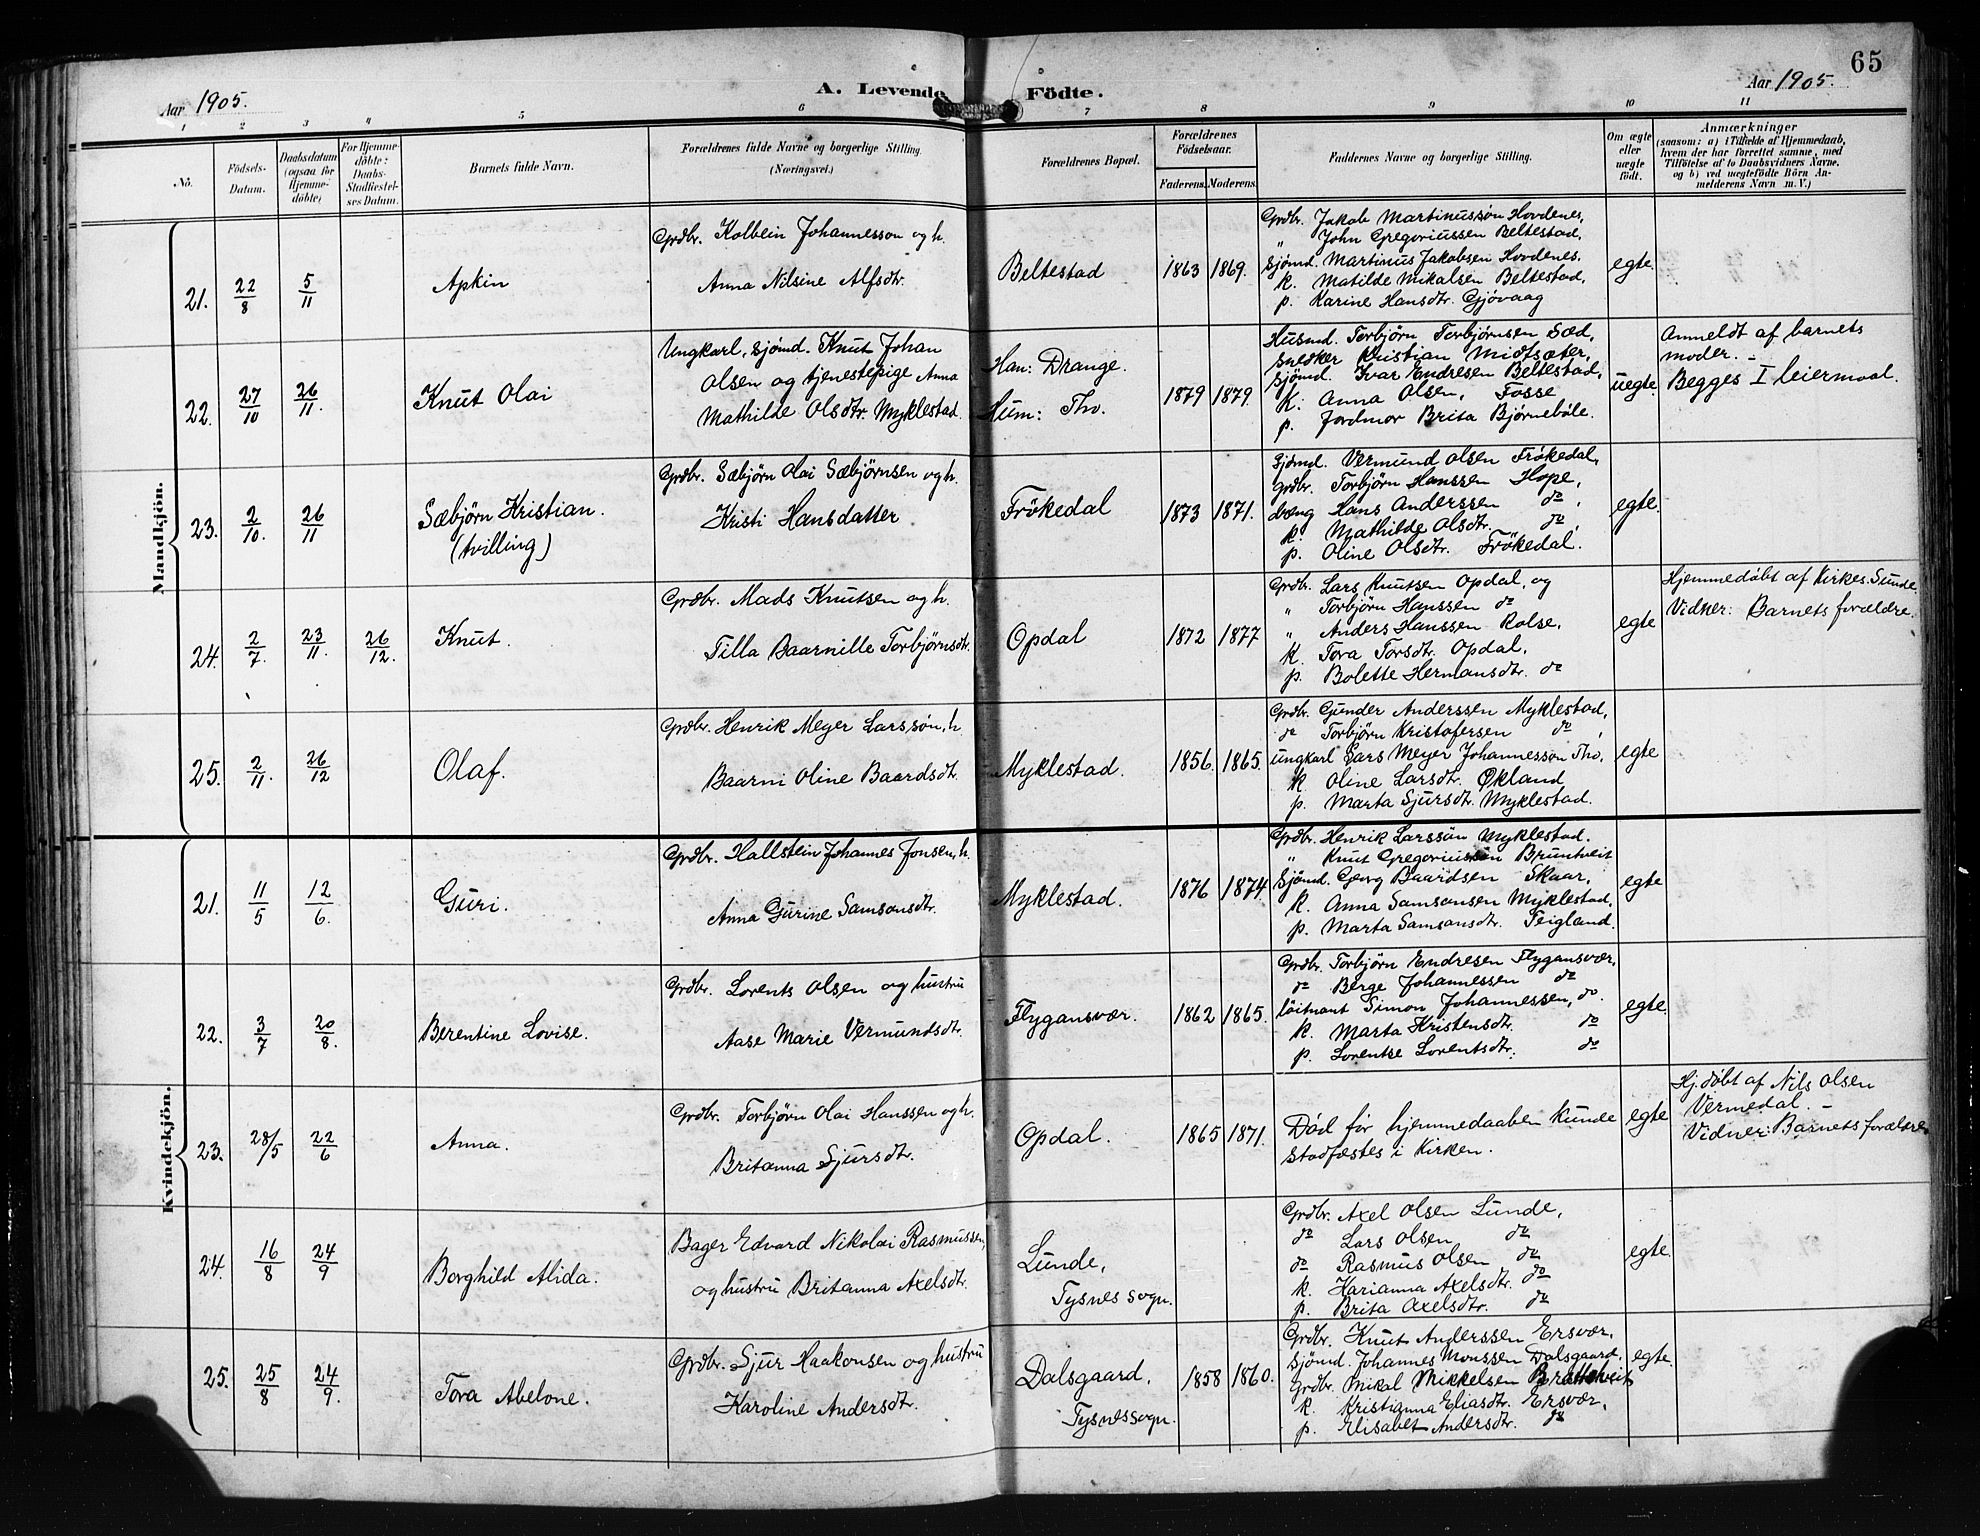 65
Aar 1905.
A. Levende Födte.
Aar 1905.
1 2 3 4 5 6 7 8 9 10 11
No.
Födsels-
Datum.
Daabsdatum
(ogsaa for
Hjemme-
döbte)
For Hjemme-
döbte:
Daabs-
Stadfæstel-
ses Datum.
Barnets fulde Navn.
Forældrenes fulde Navne og borgerlige Stilling.
(Næringsvei.)
Forældrenes Bopæl.
Forældrenes
Födselsaar.
Faderens. Moderens.
Faddernes Navne og borgerlige Stilling.
Om ægte
eller
uægte
födt.
Anmærkninger
(saasom: a) i Tilfælde af Hjemmedaab,
hvem der har forrettet samme, med
Tilföielse af to Daabsvidners Navne,
og b) ved uægtefödte Börn An-
melderens Navn m. V.)
Mandkjön.
21. 22/8 5/11
Apkin
Grdbr. Kolbein Johannesson og h.
Anna Nilsine Alfsdtr.
Beltestad
1863 1869.
Grdbr. Jakob Martinussön Hovdenes,
" John Gregoriussen Beltestad,
Sjömd. Martinus Jakobsen Hovdenes.
k. Matilde Mikalsen Beltestad,
p. Karine Hansdtr. Gjövaag
egte.
22. 27/10 26/11.
Knut Olai
Ungkarl, sjömd. Knut Johan
Olsen og tjenestepige Anna
Mathilde Olsdtr. Myklestad.
Han: Drange.
Hun: Tho.
1879 1879.
Husmd. Torbjörn Torbjörnsen Sæd,
Snedker Kristian Midtsæter,
Sjömd. Ivar Endresen Beltestad,
K. Anna Olsen, Fosse
p. Jordmor Brita Björneböle.
uegte.
Anmeldt af barnets
moder. –
Begges I leiermaal.
23. 2/10. 26/11
Sæbjörn Kristian.
(tvilling)
Grdbr. Sæbjörn Olai Sæbjörnsen og h.
Kristi Hansdatter
Frökedal
1873 1871.
Sjömd. Vermund Olsen Frökedal,
Grdbr. Torbjörn Hanssen Hope,
dræng Hans Anderssen do,
k. Mathilde Olsdtr. do,
p. Oline Olsdtr. Frökedal.
egte.
24. 2/7. 23/11. 26/12.
Knut.
Grdbr. Mads Knutsen og h.
Tilla Baarnille Torbjörnsdtr.
Opdal
1872 1877
Grdbr. Lars Knutsen Opdal, og
" Torbjörn Hanssen do
" Anders Hanssen Rolse,
K. Tora Torsdtr. Opdal,
p. Bolette Hermansdtr. do
egte
Hjemmedöbt af Kirkes. Sunde
Vidner: Barnets forældre.
25. 2/11. 26/12
Olaf.
Grdbr. Henrik Meyer Larssön, h
Baarni Oline Baardsdtr.
Myklestad.
1856. 1865.
Grdbr. Gunder Anderssen Myklestad,
do Torbjörn Kristofersen do,
ungkarl Lars Meyer Johannesson Tho,
k. Oline Larsdtr. Økland
p. Marta Sjursdtr. Myklestad.
egte
Kvindekjön.
21. 11/5 12/6.
Guri.
Grdbr. Hallstein Johannes Jonsen, h.
Anna Gurine Samsonsdtr.
Myklestad.
1876 1874.
Grdbr. Henrik Larssön Myklestad.
" Knut Gregoriussön Bruntveit
Sjömd. Georg Baardsen Skaar,
k. Anna Samsonsen Myklestad,
p. Marta Samsonsdtr. Teigland.
egte
22. 3/7 20/8.
Berentine Lovise.
Grdbr. Lorents Olsen og hustru
Aase Marie Vermundsdtr.
Flygansvær.
1862 1865.
Grdbr. Torbjörn Endresen Flygansvær,
do Berge Johannessen do
löitnant Simon Johannessen, do.
k. Marta Kristensdtr. do
p. Lorentse Lorentsdtr. do
egte.
23. 28/5 22/6
Anna.
Grdbr. Torbjörn Olai Hanssen og h.
Britanna Sjursdtr.
Opdal.
1865 1871.
Död för hjemmedaaben kunde
stadfæstes i Kirken.
egte
Hj.döbt af Nils Olsen
Vermedal. –
Vidner: Barnets forældre.
24. 16/8 24/9
Borghild Alida.
Bager Edvard Nikolai Rasmussen,
og hustru Britanna Axelsdtr.
Lunde,
Tysnes sogn.
Grdbr. Axel Olsen Lunde,
do Lars Olsen do
do Rasmus Olsen do
k. Harianna Axelsdtr. do
p. Brita Axelsdtr. do
egte.
25. 25/8 24/9.
Tora Abelone.
Grdbr. Sjur Haakonsen og hustru
Karoline Andersdtr.
Dalsgaard,
Tysnessogn.
1858 1860.
Grdbr. Knut Anderssen Ersvær,
Sjömd. Johannes Monssen Dalsgaard,
Grdbr. Mikal Mikkelsen Brattetveit
k. Kristianna Eliasdtr. Ersvær,
p. Elisabet Andersdtr. do
egte.